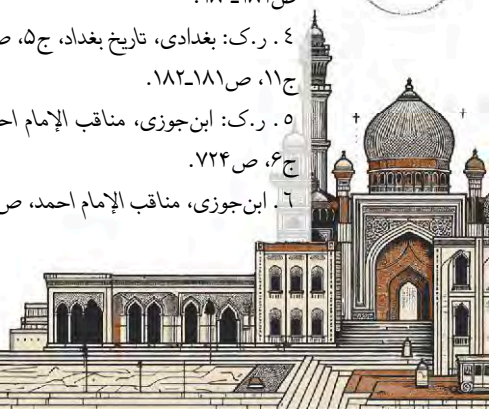 ٤. ر.ک: بغدادی، تاریخ بغداد، ج۵، ص
ج۱۱، ص۱۸۱ـ۱۸۲.
۵. ر.ک: ابن‌جوزی، مناقب الإمام اح
ج۶، ص۷۲۴.
٦. ابن‌جوزی، مناقب الإمام احمد، ص